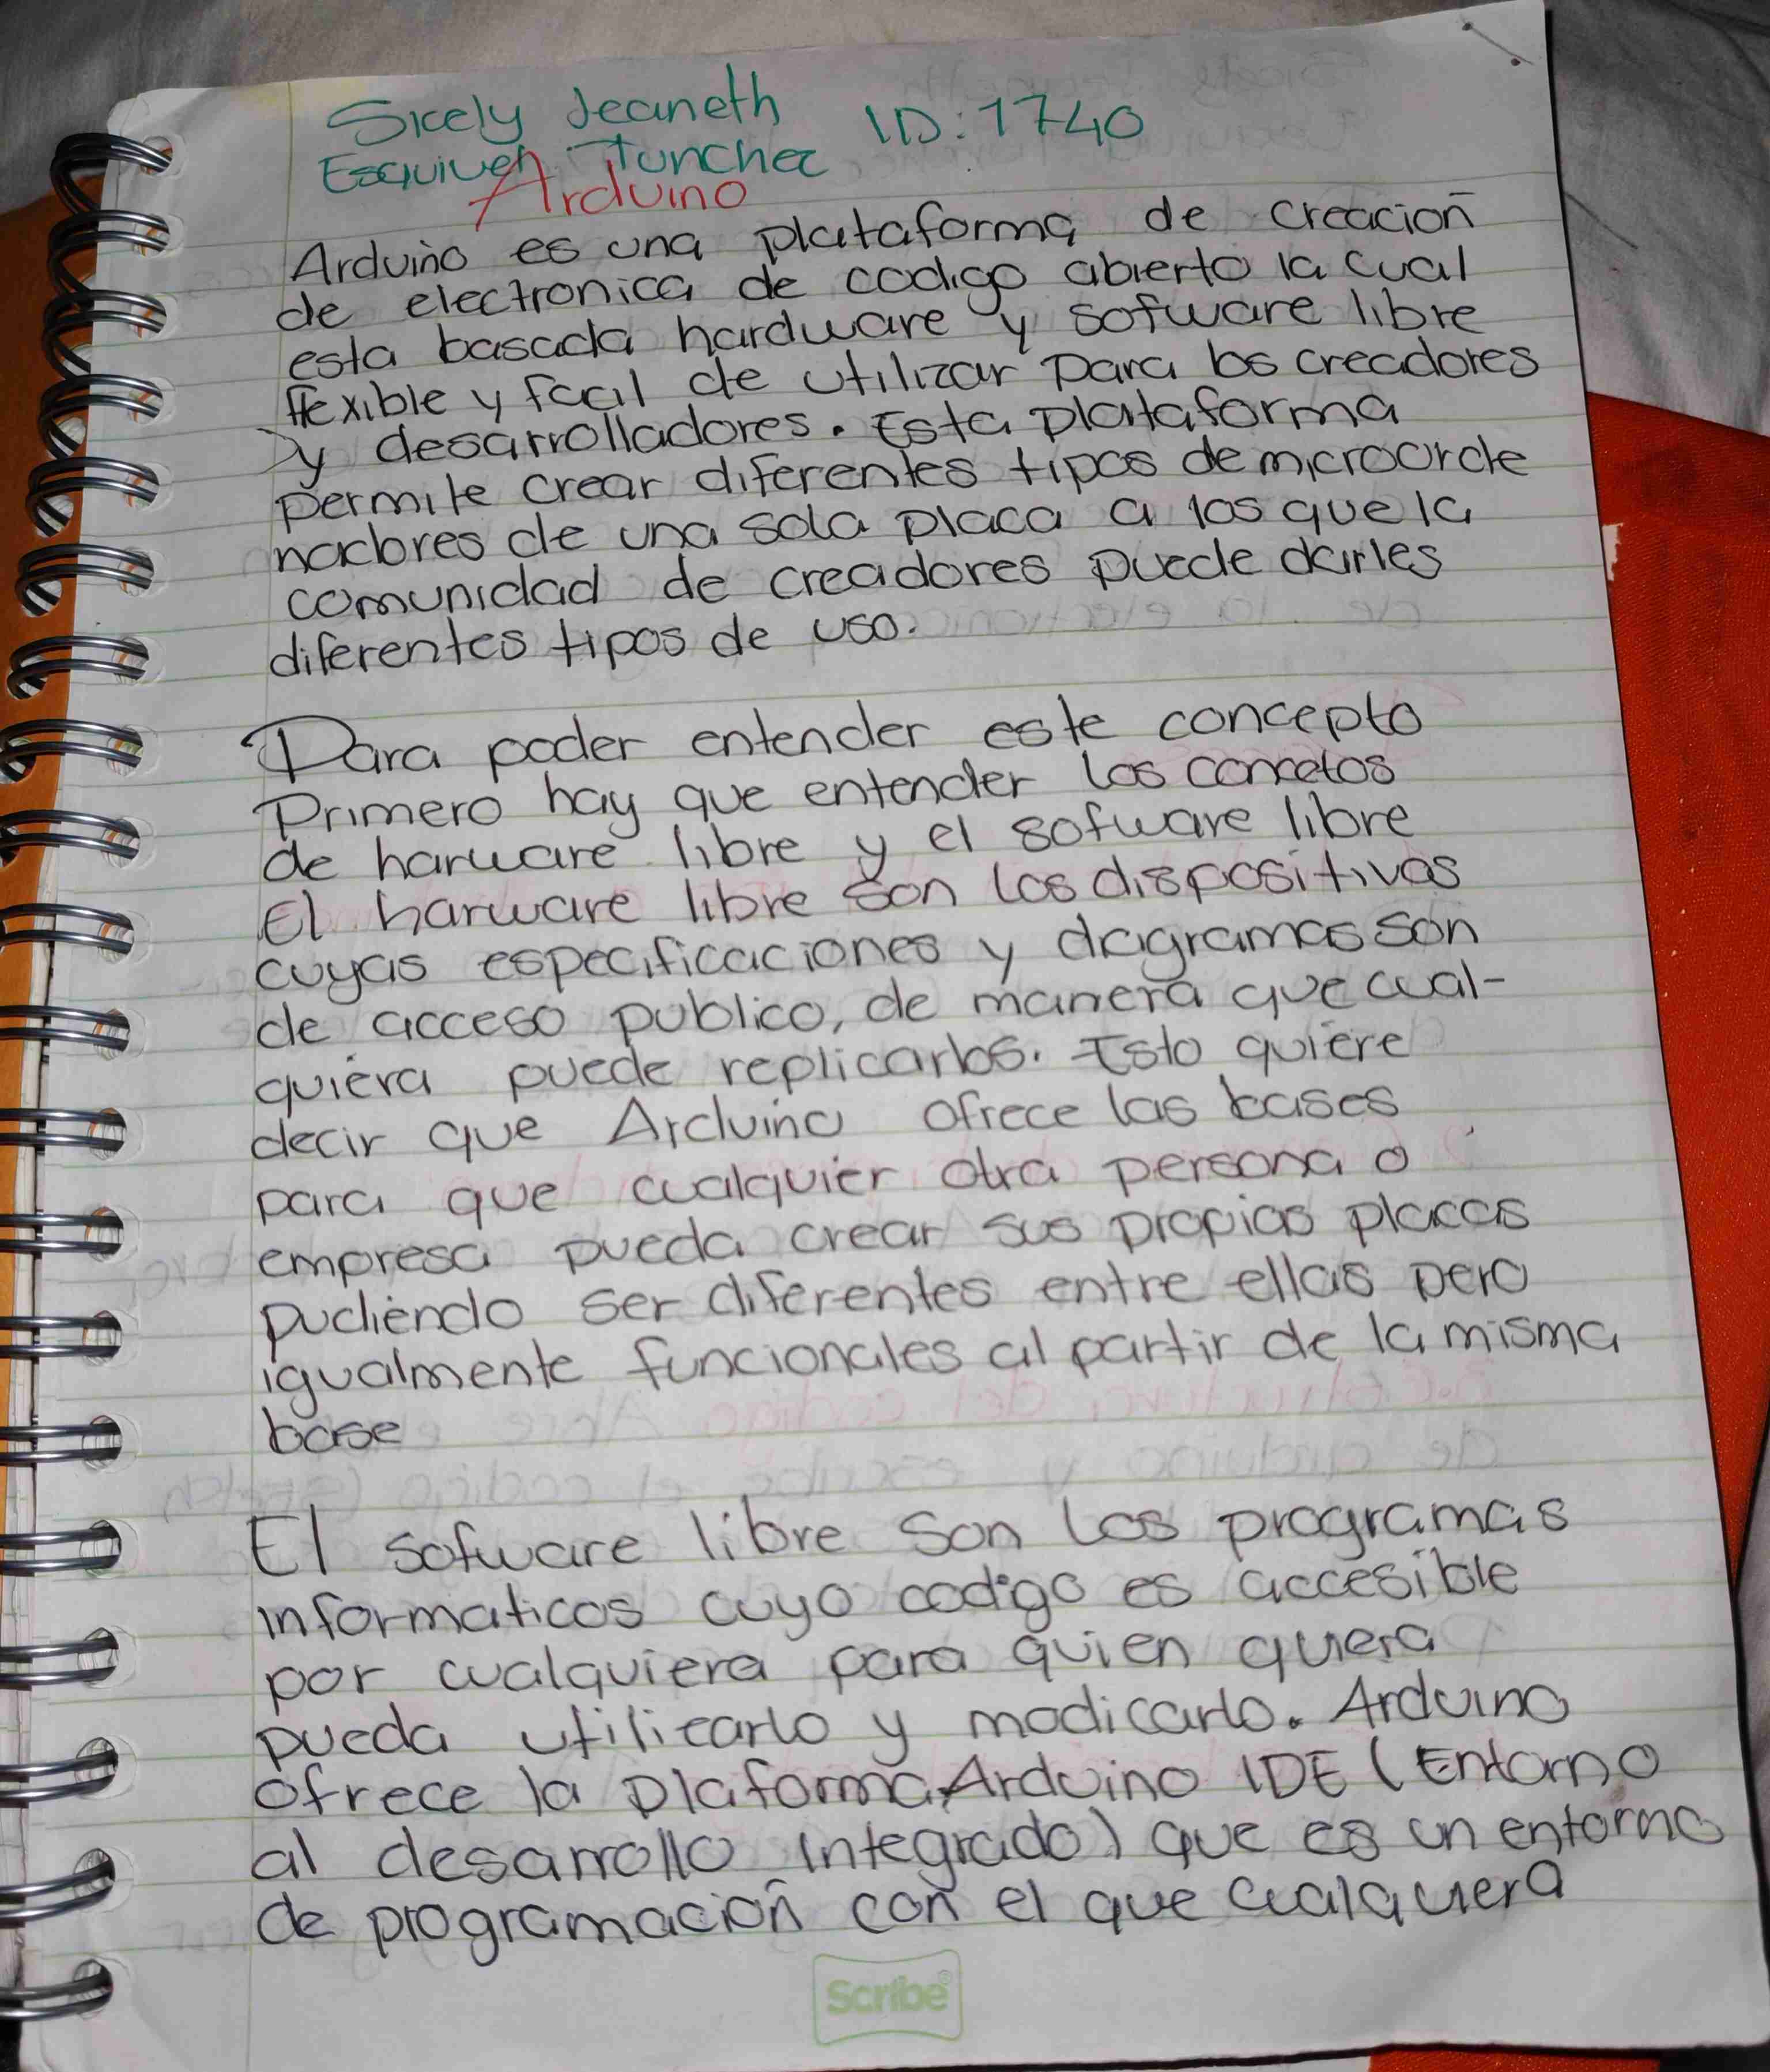 Sicely Jeaneth ID: 1740
Esquivel Tunchez
Arduino
Arduino es una plataforma de creación
de electronica de codigo abierto la cual
esta basada hardware y sofware libre
flexible y facil de utilizar para los creadores
y desarrolladores. Esta plataforma
permite crear diferentes tipos de microorde
nadores de una sola placa a los que la
comunidad de creadores puede darles
diferentes tipos de uso.
Para poder entender este concepto
Primero hay que entender los concetos
de harware libre y el sofware libre
El harware libre son los dispositivos
cuyas especificaciones y diagramas son
de acceso publico, de manera que cual-
quiera puede replicarlos. Esto quiere
decir que Arduino ofrece las bases
para que cualquier otra persona o
empresa pueda crear sus propias placas
pudiendo ser diferentes entre ellas pero
igualmente funcionales al partir de la misma
base
El sofware libre son los programas
informaticos cuyo codigo es accesible
por cualquiera para quien quiera
pueda utilizarlo y modicarlo. Arduino
ofrece la plaforma Arduino IDE (Entorno
al desarrollo Integrado) que es un entorno
de programación con el que cualquiera
Scribe